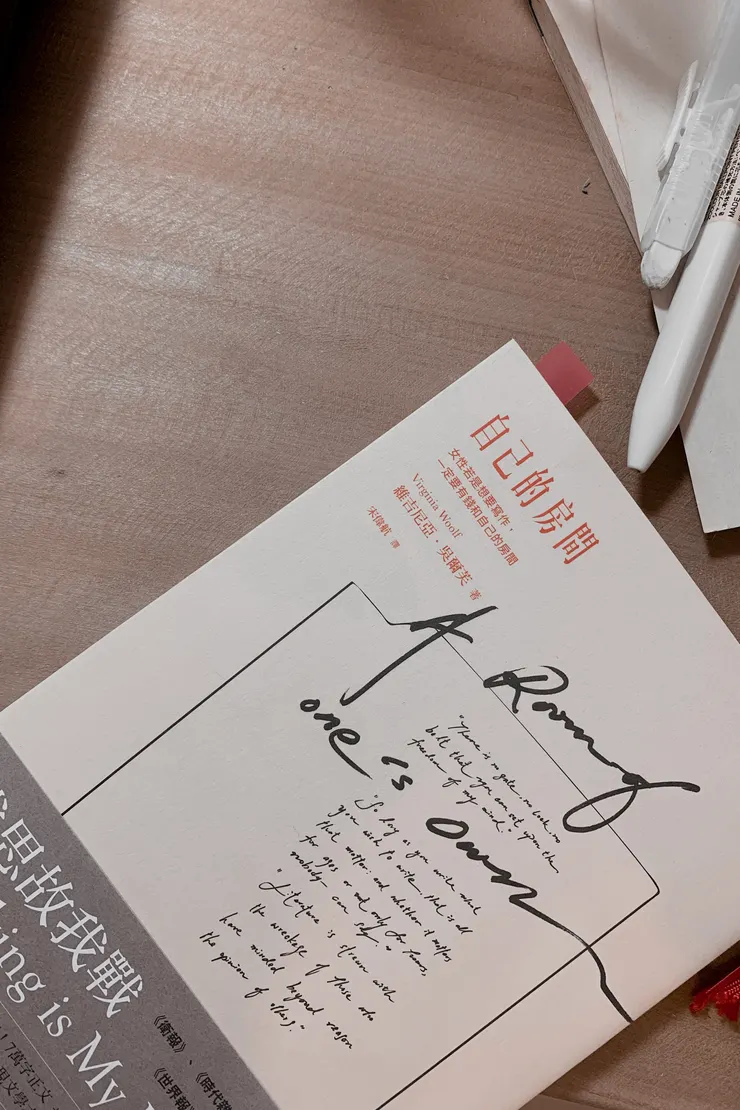 自己的房間
女性若是想要寫作，
一定要有錢和自己的房間
Virginia Woolf
維吉尼亞・吳爾芙 著
宋偉航 譯
A Room of
one's Own
"There is no gate, no lock, no
bolt that you can set upon the
freedom of my mind."
"So long as you write what
you wish to write, that is all
that matters; and whether it matters
for ages or only for hours,
nobody can say."
"Literature is strewn with
the wreckage of those who
have minded beyond reason
the opinion of others."
思故我戰
ing is My
《衛報》、《時代
《世界報
萬字正文
MADE IN